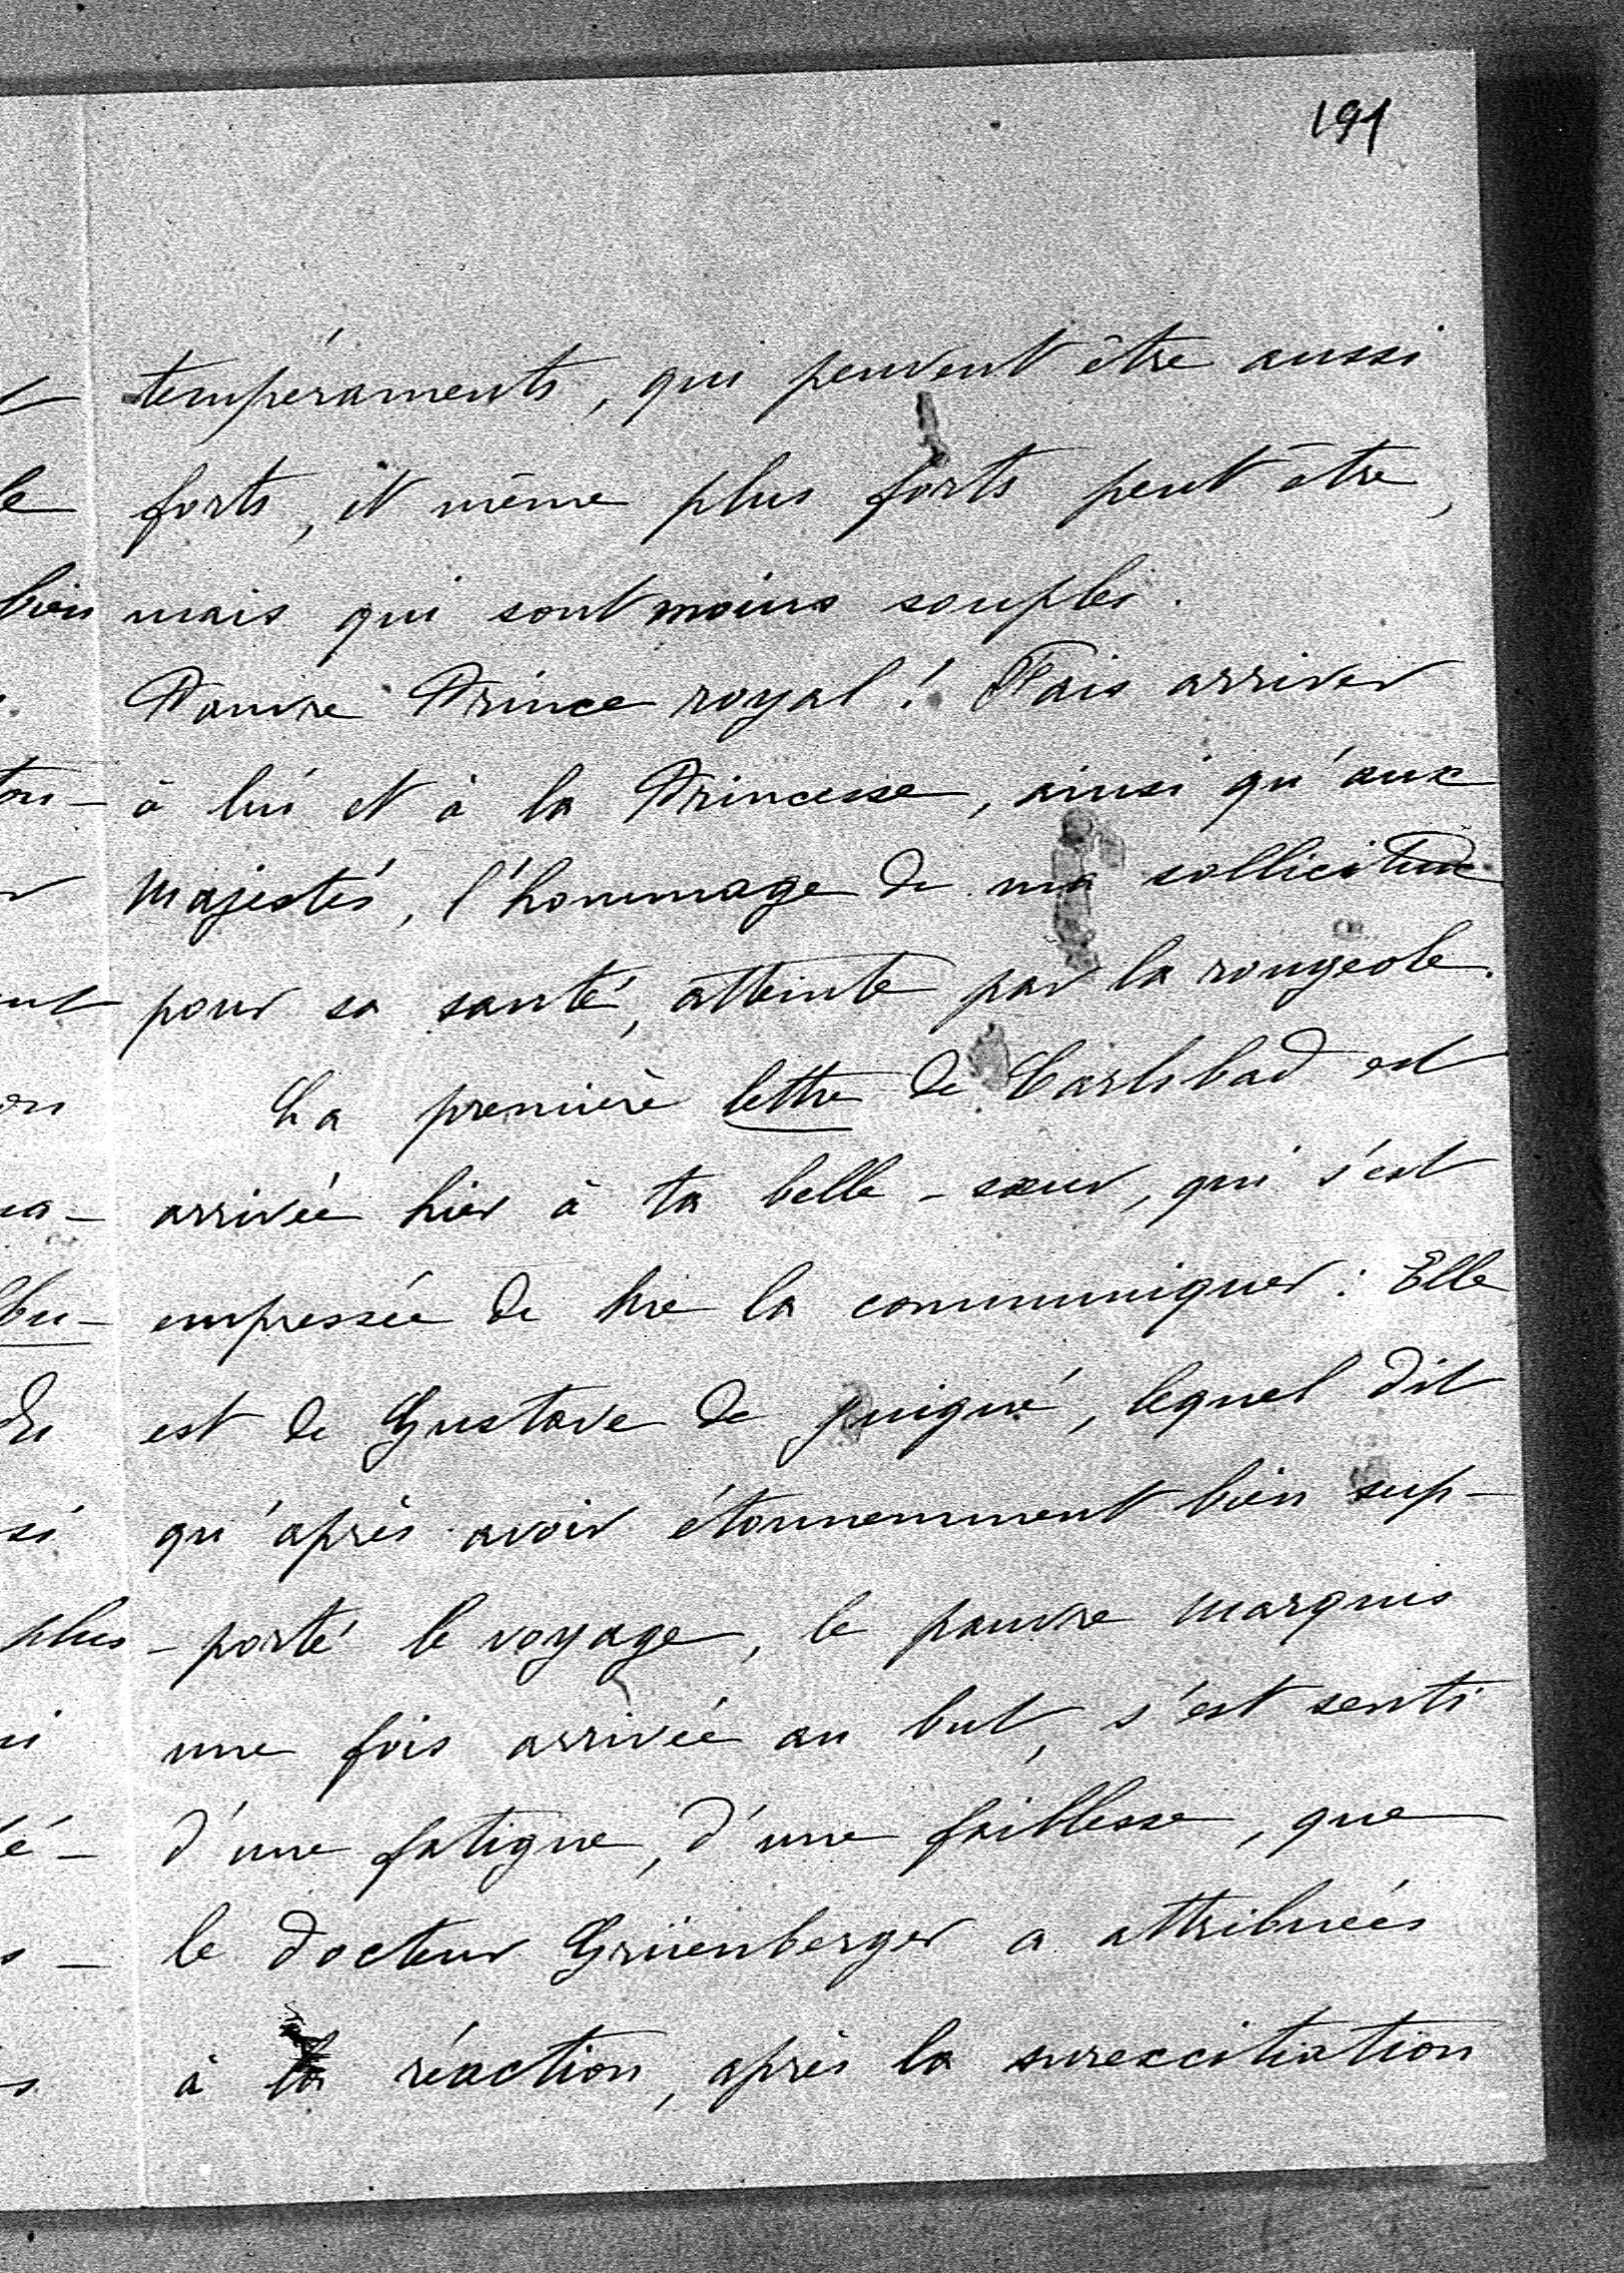 191
tempéraments, qui peuvent être aussi
forts, et même plus forts peut être,
mais qui sont moins souples.
Pauvre Prince royal ! Fais arriver
à lui et à la Princesse, ainsi qu'aux
Majestés, l'hommage de ma sollicitude
pour sa santé, atteinte par la rougeole.
La première lettre de Carlsbad est
arrivée hier à ta belle-sœur, qui s'est
empressée de me la communiquer : Elle
est de Gustave de , lequel dit
qu'après avoir étonnemment bien sup-
-porté le voyage, le pauvre marquis
une fois arrivée au but, s'est senti
d'une fatigue, d'une faiblesse, que
le docteur Grüenberger a attribuées
à la réaction, après la surexcitiation
le
bien
ton-
ent
on
bu-
du
si
plus